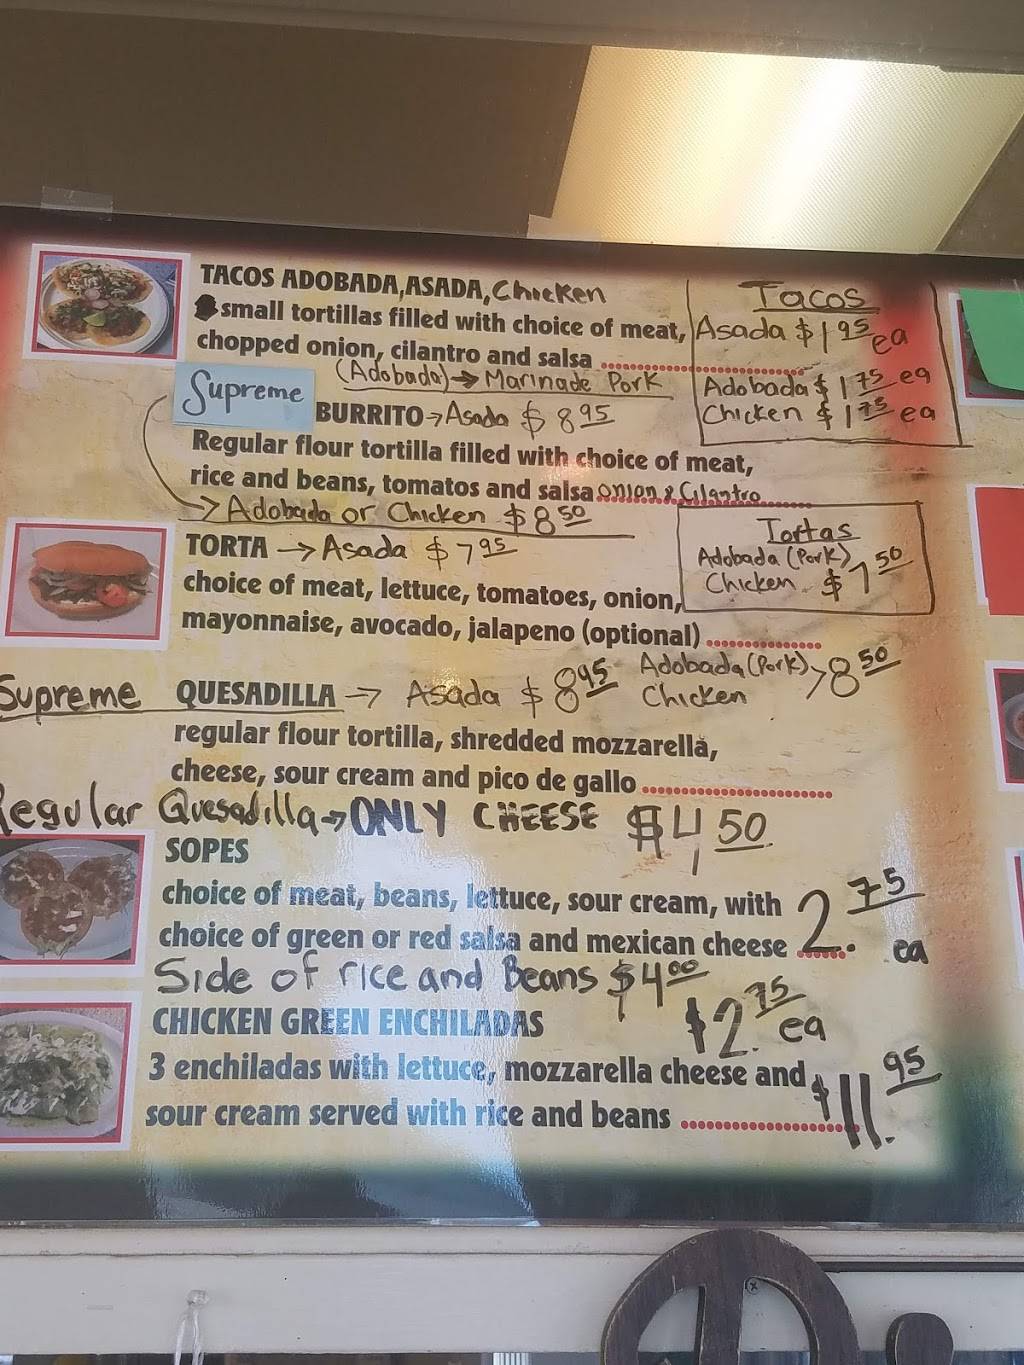 TACOS ADOBADA, ASADA, Chicken
small tortillas filled with choice of meat,
chopped onion, cilantro and salsa
(Adobada) → Marinade Pork
Tacos
Asada $1.95 ea
Adobada $1.75 ea
Chicken $1.75 ea
Supreme
BURRITO → Asada $8.95
Regular flour tortilla filled with choice of meat,
rice and beans, tomatos and salsa onion & Cilantro
→ Adobada or Chicken $8.50
TORTA → Asada $7.95
choice of meat, lettuce, tomatoes, onion,
mayonnaise, avocado, jalapeno (optional)
Tortas
Adobada (Pork)
Chicken $7.50
Supreme QUESADILLA → Asada $8.95
Adobada (Pork)
Chicken > 8.50
regular flour tortilla, shredded mozzarella,
cheese, sour cream and pico de gallo
Regular Quesadilla → ONLY CHEESE $4.50
SOPES
choice of meat, beans, lettuce, sour cream, with
choice of green or red salsa and mexican cheese 2.75 ea
Side of rice and Beans $4.00
$2.75 ea
CHICKEN GREEN ENCHILADAS
3 enchiladas with lettuce, mozzarella cheese and
sour cream served with rice and beans $11.95